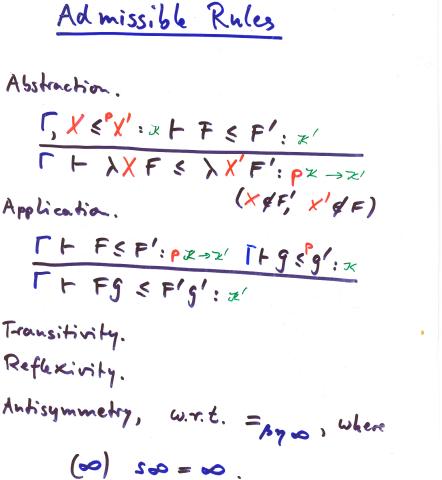 Admissible Rules
Abstraction.
Γ, X ≤ᵖ X' : κ ⊢ F ≤ F' : κ'
Γ ⊢ λX F ≤ λX' F' : pκ → κ'
(X ∉ F', X' ∉ F)
Application.
Γ ⊢ F ≤ F' : pκ → κ' Γ ⊢ G ≤ᵖ G' : κ
Γ ⊢ FG ≤ F'G' : κ'
Transitivity.
Reflexivity.
Antisymmetry, w.r.t. =βη∞, where
(∞) s∞ = ∞.